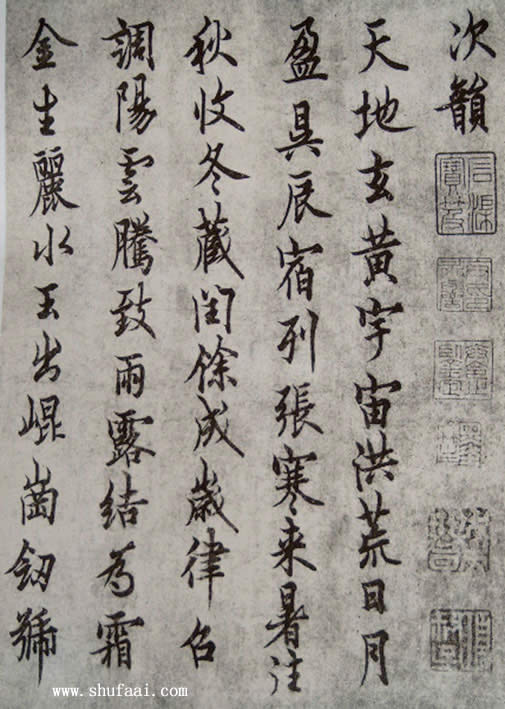 次韻
天地玄黃宇宙洪荒日月
盈昃辰宿列張寒来暑往
秋收冬藏闰餘成歲律召
調陽雲騰致雨露結為霜
金生麗水玉出崐崗劒號
www.shufaai.com